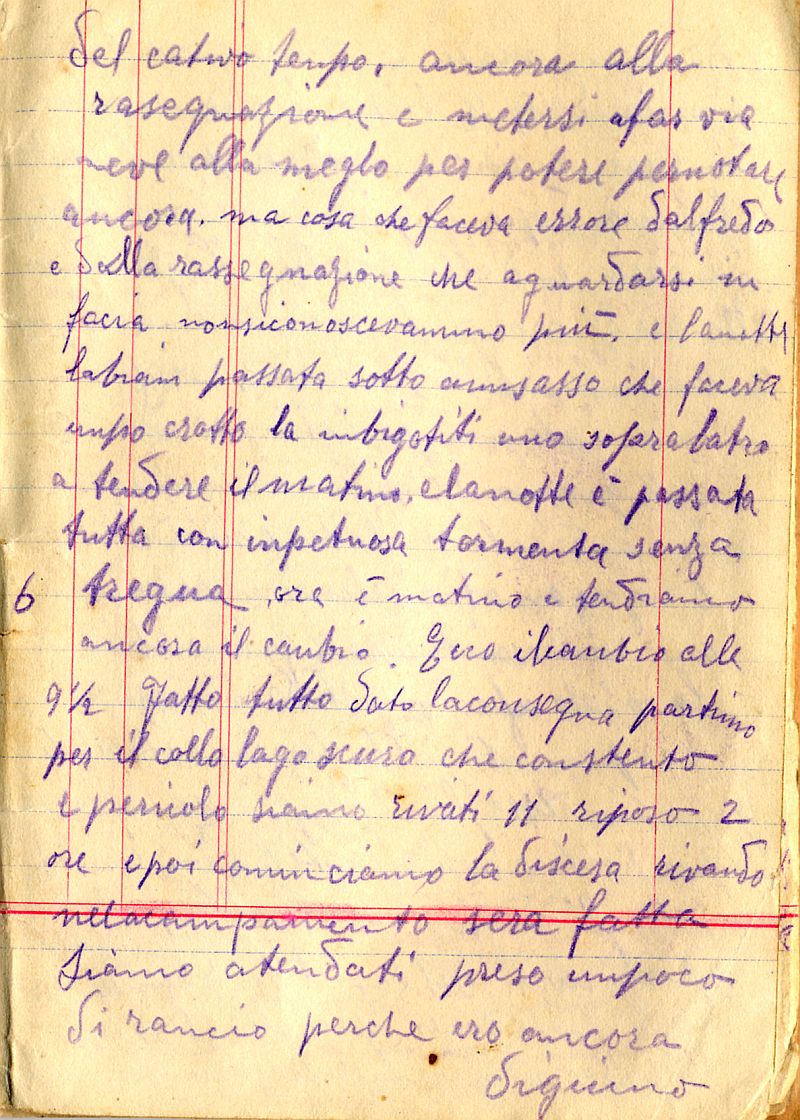 del cativo tenpo. ancora alla
rasegnazione e metersi afar via
neve alla meglo per potere pernotare
ancora. ma cosa che faceva errore dalfredo
e della rassegnazione che aguardarsi in
facia nonsiconoscevammo più, e lanotte
labiam passata sotto che faceva
unpo crotto la inbigotiti uno sopralatro
a tendere il matino. elanotte è passata
tutta con inpetuosa tormenta senza
6 tregua, ora è matino e tendiamo
ancora il canbio. Ecco ilcanbio alle
9½ Fatto tutto dato laconsegna partimo
per il collo lago scuro che constento
e pericolo siamo rivati 11 riposo 2
ore epoi cominciamo la discesa rivando
nelacampamento sera fatta
siamo atendati preso unpoco
di rancio perche ero ancora
digiuno